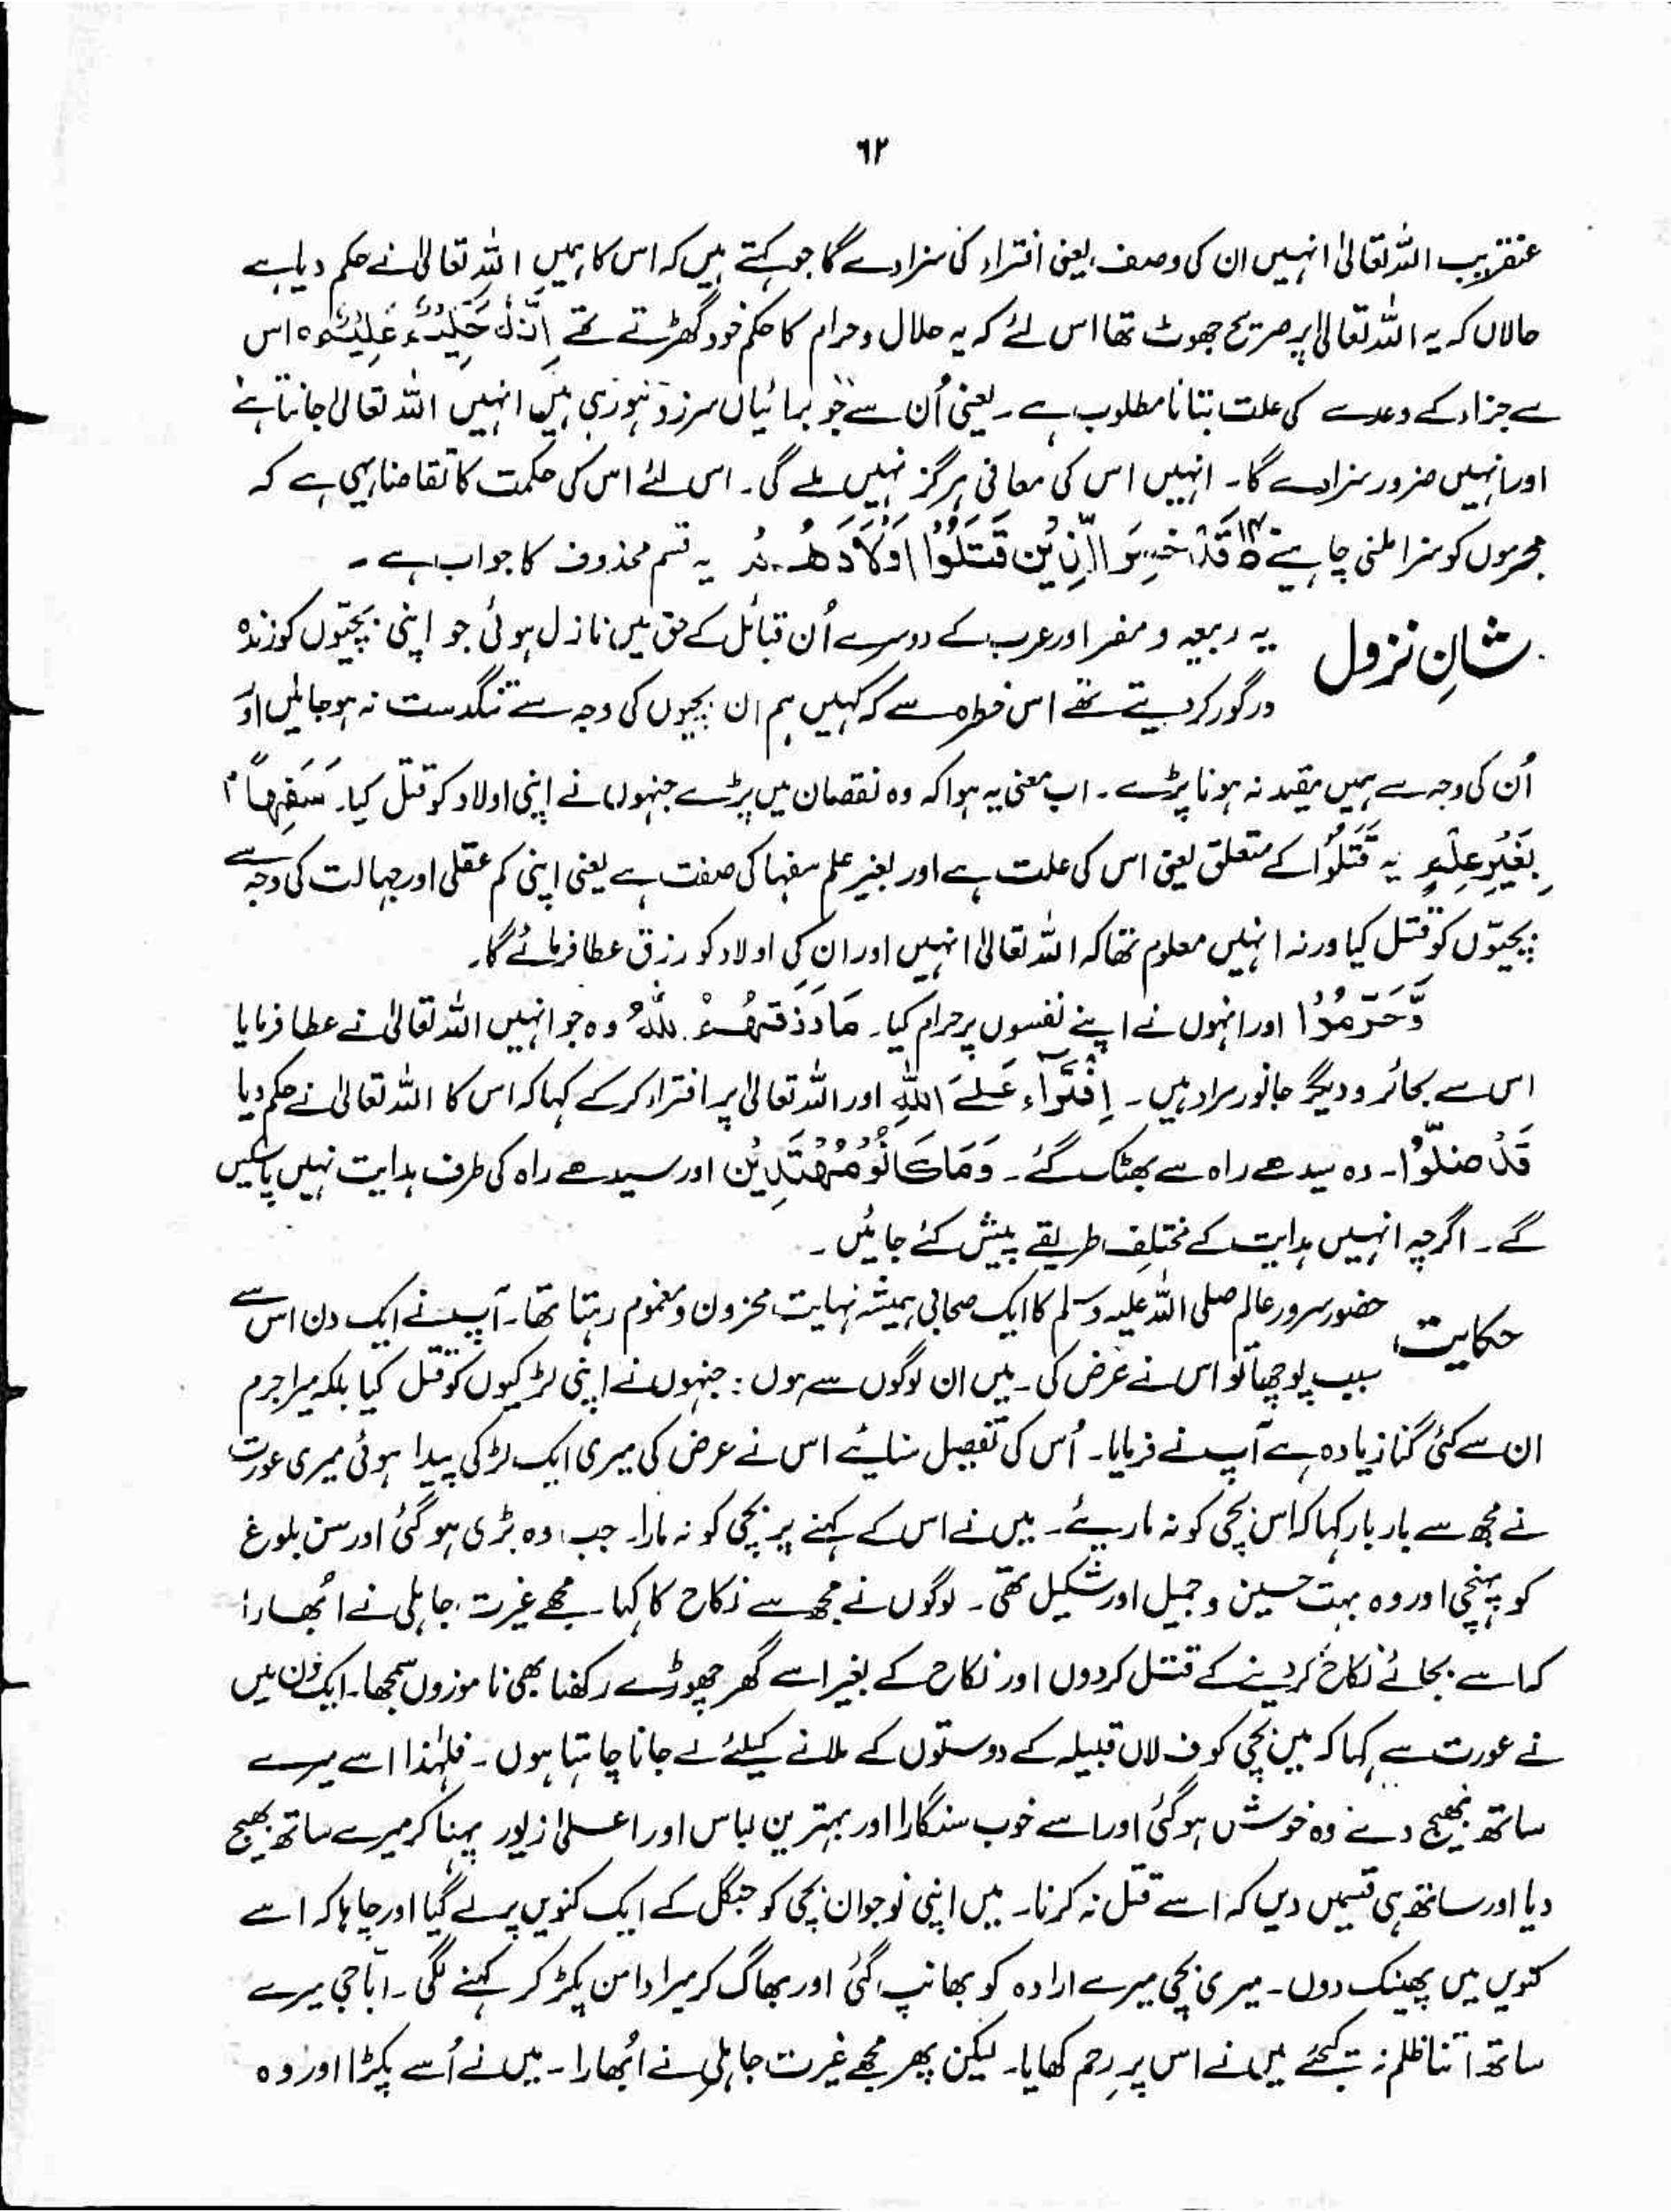 ٦٢
عنقریب اللہ تعالیٰ انہیں ان کی وصف یعنی افتراء کی سزا دے گا جو کہتے ہیں کہ اس کا ہمیں اللہ تعالیٰ نے حکم دیا ہے
حالاں کہ یہ اللہ تعالیٰ پر صریح جھوٹ تھا اس لئے کہ یہ حلال و حرام کا حکم خود گھڑتے تھے اِنَّهٗ حَكِيْمٌ عَلِيْمٌ ○ اس
سے جزاء کے وعدے کی علت بتانا مطلوب ہے ۔ یعنی اُن سے جو برائیاں سرزد ہو رہی ہیں انہیں اللہ تعالیٰ جانتا ہے
اور انہیں ضرور سزا دے گا۔ انہیں اس کی معافی ہرگز نہیں ملے گی۔ اس لئے اس کی حکمت کا تقاضا یہی ہے کہ
مجرموں کو سزا ملنی چاہیئے ○ قَدْ خَسِرَ الَّذِيْنَ قَتَلُوْٓا اَوْلَادَهُمْ یہ قسم محذوف کا جواب ہے ۔
شانِ نزول یہ ربیعہ و مضر اور عرب کے دوسرے اُن قبائل کے حق میں نازل ہوئی جو اپنی بچیّوں کو زندہ
درگور کر دیتے تھے اس خطرہ سے کہ کہیں ہم ان بچیوں کی وجہ سے تنگدست نہ ہو جائیں اور
اُن کی وجہ سے ہمیں مقید نہ ہونا پڑے ۔ اب معنیٰ یہ ہوا کہ وہ نقصان میں پڑے جنہوں نے اپنی اولاد کو قتل کیا۔ سَفَهًاۢ
بِغَيْرِ عِلْمٍ یہ قَتَلُوْا کے متعلق یعنی اس کی علت ہے اور بغیر علم سفہا کی صفت ہے یعنی اپنی کم عقلی اور جہالت کی وجہ سے
بچیّوں کو قتل کیا ورنہ انہیں معلوم تھا کہ اللہ تعالیٰ انہیں اور ان کی اولاد کو رزق عطا فرمائے گا۔
وَّحَرَّمُوْا اور انہوں نے اپنے نفسوں پر حرام کیا۔ مَا رَزَقَهُمُ اللّٰهُ وہ جو انہیں اللہ تعالیٰ نے عطا فرمایا
اس سے بحائر و دیگر جانور مراد ہیں ۔ اِفْتِرَآءً عَلَى اللّٰهِ اور اللہ تعالیٰ پر افتراء کرکے کہا کہ اس کا اللہ تعالیٰ نے حکم دیا
قَدْ ضَلُّوْا۔ وہ سیدھے راہ سے بھٹک گئے ۔ وَمَا كَانُوْا مُهْتَدِيْنَ اور سیدھے راہ کی طرف ہدایت نہیں پاسکیں
گے ۔ اگرچہ انہیں ہدایت کے مختلف طریقے پیش کئے جائیں ۔
حکایت حضور سرور عالم صلی اللہ علیہ وسلم کا ایک صحابی ہمیشہ نہایت محزون و مغموم رہتا تھا۔ آپ نے ایک دن اس سے
سبب پوچھا تو اس نے عرض کی ۔ میں ان لوگوں سے ہوں : جنہوں نے اپنی لڑکیوں کو قتل کیا بلکہ میرا جرم
ان سے کئی گنا زیادہ ہے آپ نے فرمایا۔ اُس کی تفصیل سنایئے اس نے عرض کی میری ایک لڑکی پیدا ہوئی میری عورت
نے مجھ سے بار بار کہا کہ اس بچی کو نہ ماریئے۔ میں نے اس کے کہنے پر بچی کو نہ مارا۔ جب وہ بڑی ہو گئی اور سن بلوغ
کو پہنچی اور وہ بہت حسین و جمیل اور شکیل تھی ۔ لوگوں نے مجھ سے نکاح کا کہا۔ مجھے غیرت جاہلی نے اُبھارا
کہ اسے بجائے نکاح کر دینے کے قتل کردوں اور نکاح کے بغیر اسے گھر چھوڑے رکھنا بھی نا موزوں سمجھا۔ ایک دن میں
نے عورت سے کہا کہ میں بچی کو فلاں قبیلہ کے دوستوں کے ملانے کیلئے لے جانا چاہتا ہوں ۔ فلہٰذا اسے میرے
ساتھ بھیج دے وہ خوش ہو گئی اور اسے خوب سنگارا اور بہترین لباس اور اعلیٰ زیور پہنا کر میرے ساتھ بھیج
دیا اور ساتھ ہی قسمیں دیں کہ اسے قتل نہ کرنا۔ میں اپنی نوجوان بچی کو جنگل کے ایک کنویں پر لے گیا اور چاہا کہ اسے
کنویں میں پھینک دوں ۔ میری بچی میرے ارادہ کو بھانپ گئی اور بھاگ کر میرا دامن پکڑ کر کہنے لگی ۔ ابّا جی میرے
ساتھ اتنا ظلم نہ کیجئے میں نے اس پر رحم کھایا۔ لیکن پھر مجھے غیرت جاہلی نے اُبھارا ۔ میں نے اُسے پکڑا اور وہ